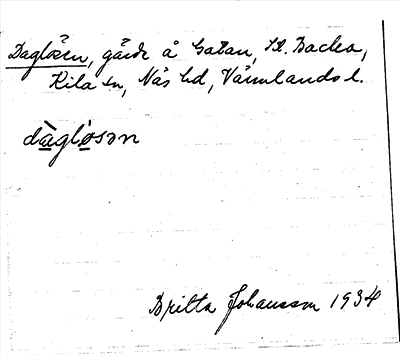 Daglösen, gärde å Gatan, St. Backa,
Kila sn, Näs hd, Värmlands l.
dàglo̱sən
Britta Johansson 1934